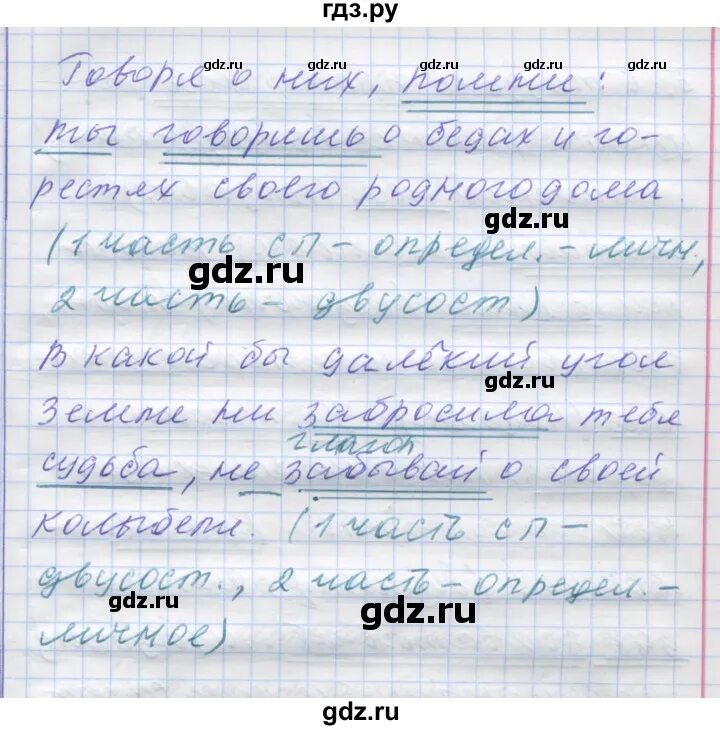 гдз.ру
Говоря о них, помни:
ты говоришь о бедах и го-
рестях своего родного дома.
(1 часть СП – определ.-личн.,
2 часть – двусост.)
В какой бы далёкий угол
Земли ни забросила тебя
глагол
судьба, не забывай о своей
колыбели. (1 часть СП –
двусост., 2 часть – определ.-
личное)
gdz.ru
gdz.ru
gdz.ru
gdz.ru
gdz.ru
gdz.ru
gdz.ru
gdz.ru
gdz.ru
gdz.ru
gdz.ru